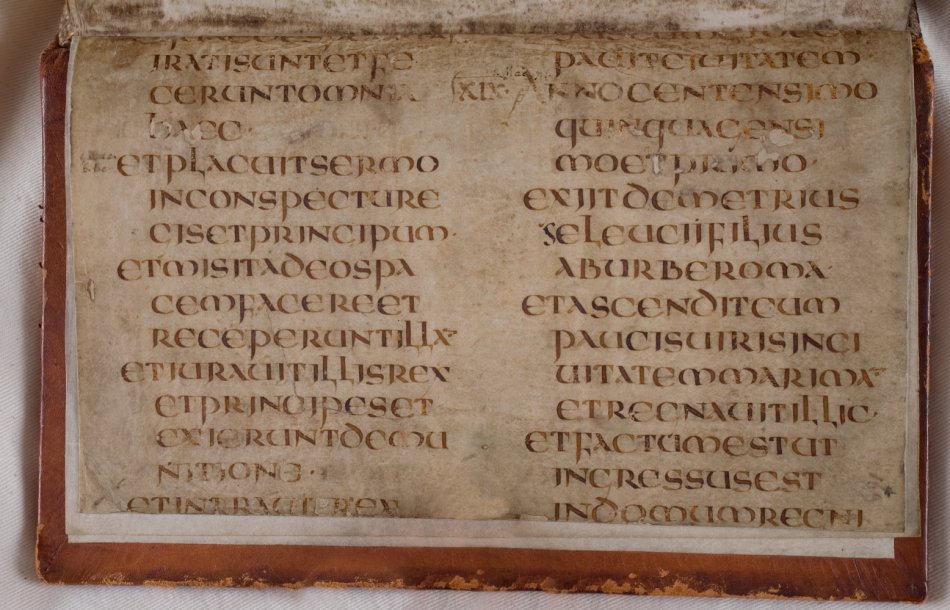 IRATISUNTETFE
CERUNTOMNIA
haec·
ETPLACUITSERMO
INCONSPECTURE
CISETPRINCIPUM·
ETMISITADEOSPA
CEMFACEREET
RECEPERUNTILLĀ
ETIURAUITILLISREX
ETPRINCIPESET
EXIERUNTDEMU
NITIONE·
ETINTRAUITREX
PAUITCIUITATEM
XIX· ANNOCENTENSIMO
QUINQUAGENSI
MOETPRIMO·
EXIITDEMETRIUS
SELEUCIIFILIUS
ABURBEROMA·
ETASCENDITCUM
PAUCISUIRISINCI
UITATEMMARIMĀ
ETREGNAUITILLIC·
ETFACTUMESTUT
INGRESSUSEST
INDOMUMREGNI